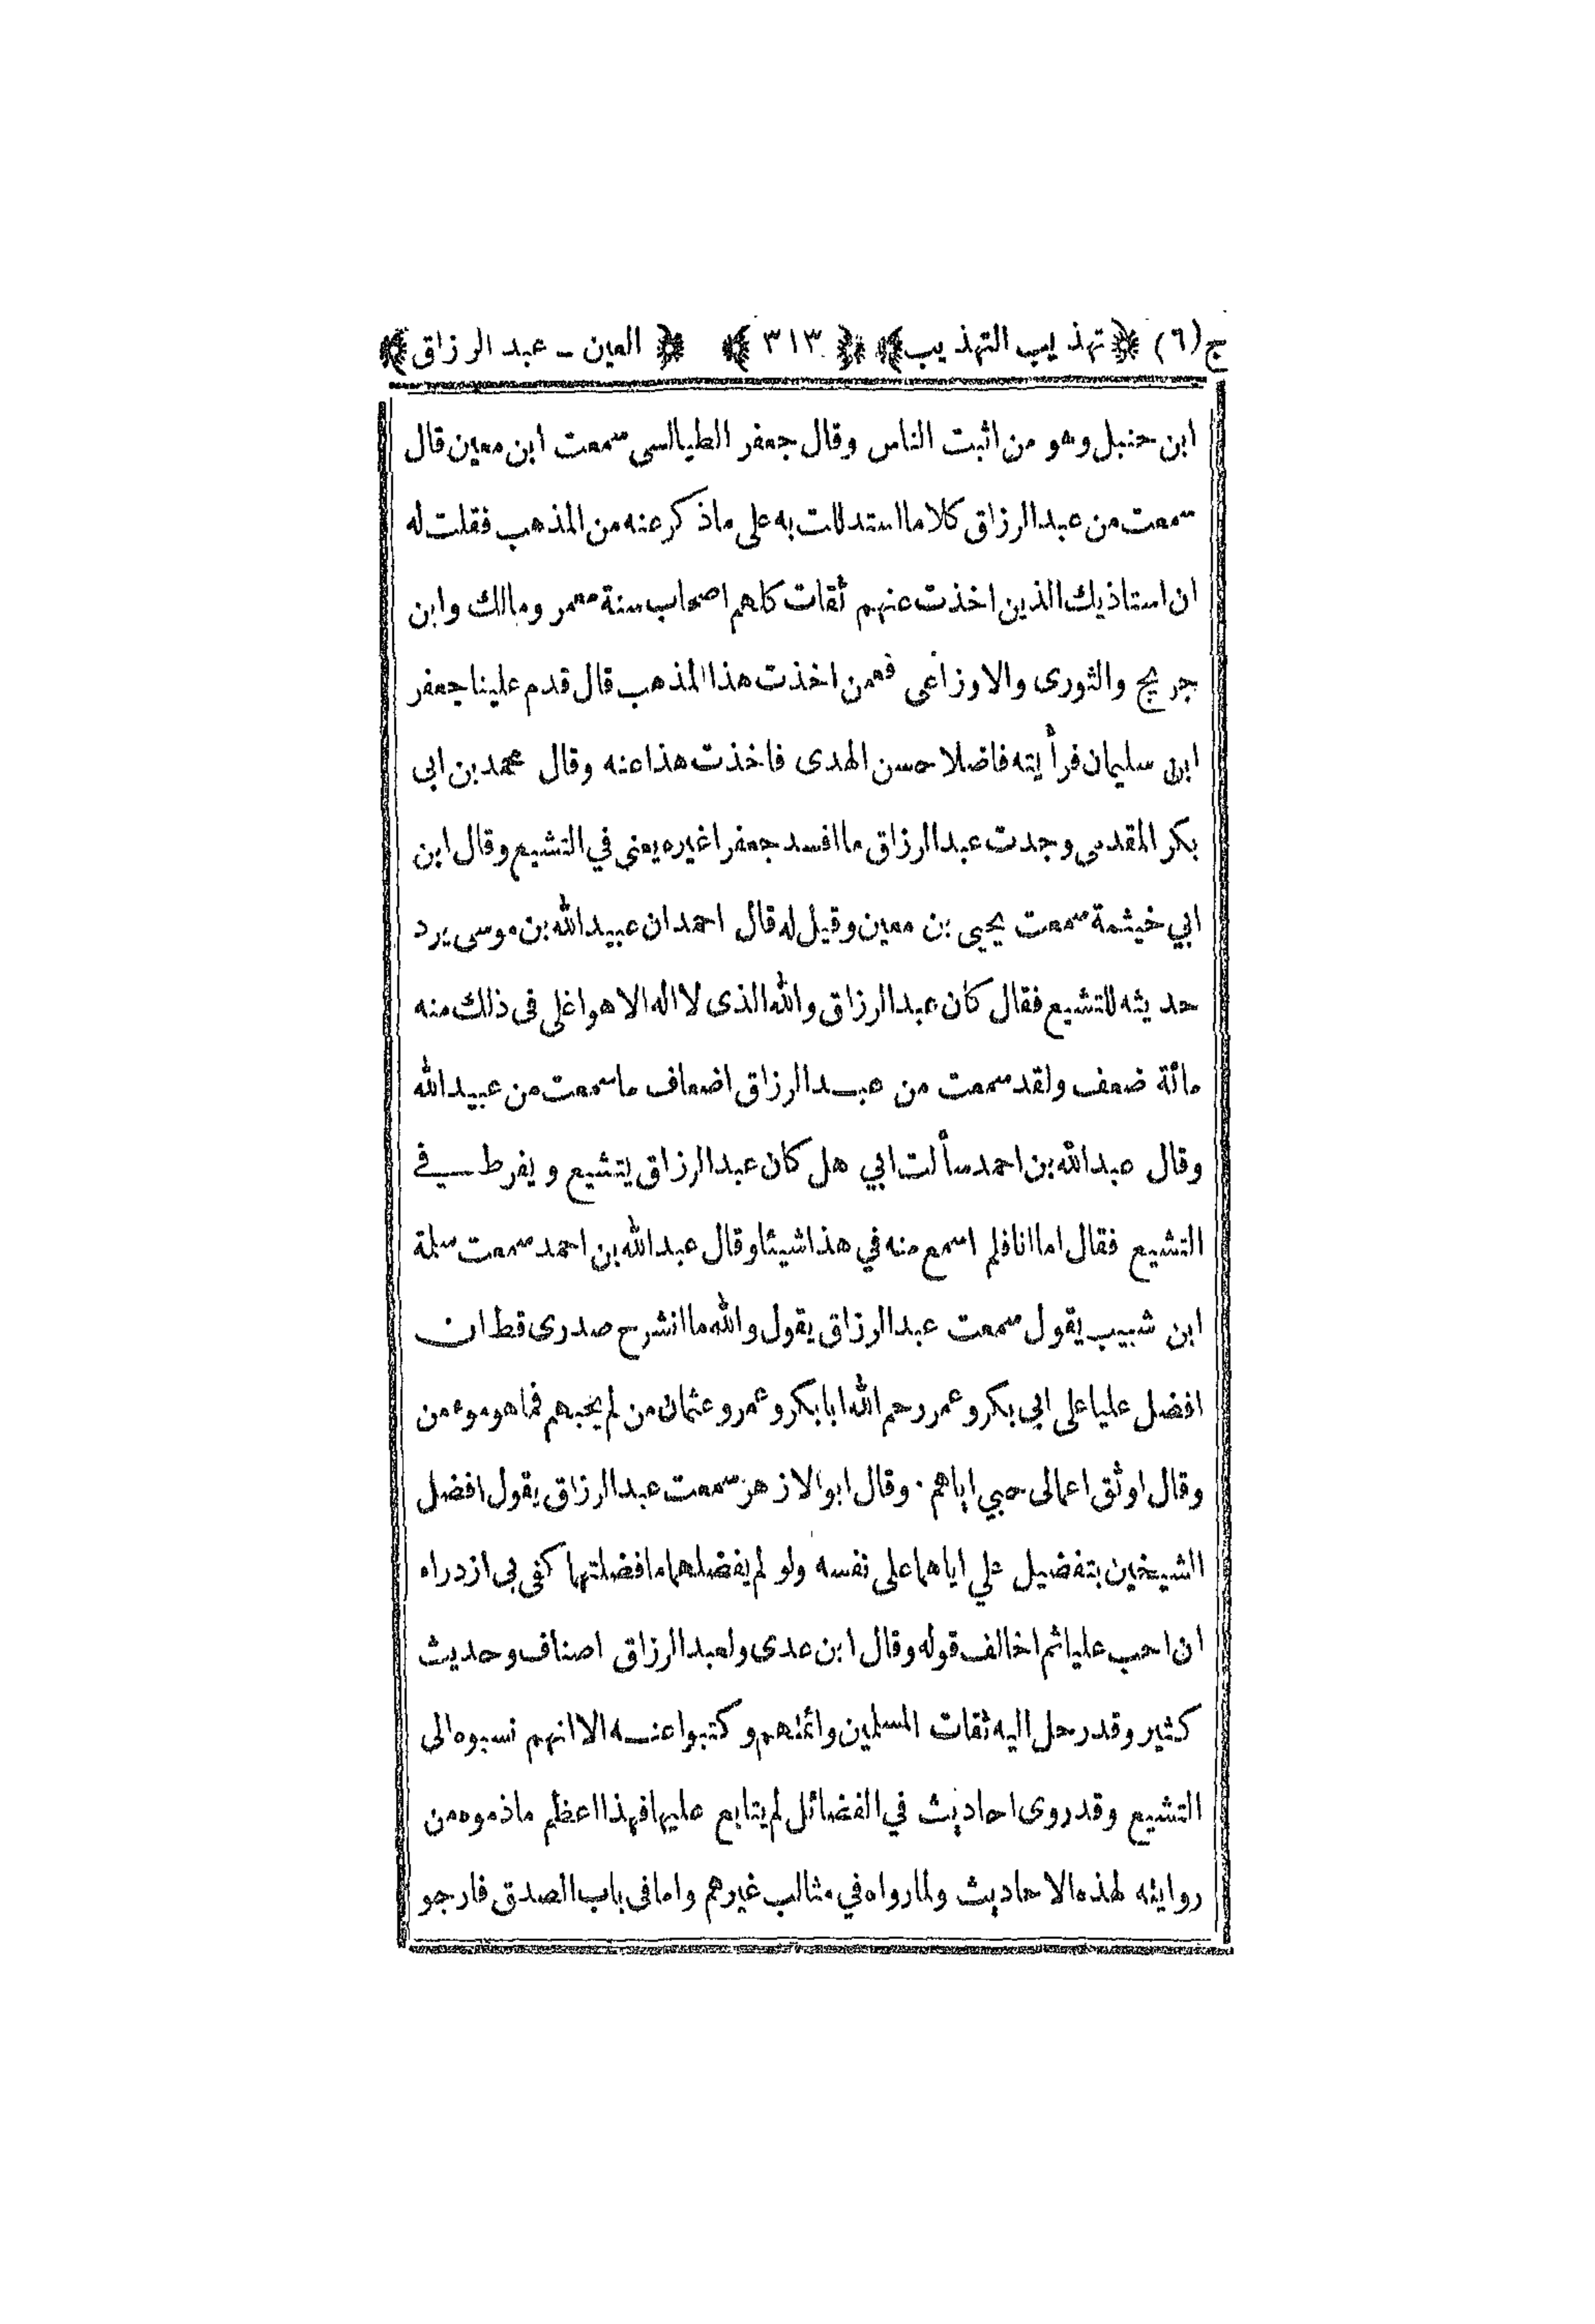 ج(٦) ﴿تهذيب التهذيب﴾ ﴿٣١٣﴾ ﴿العين - عبد الرزاق﴾
ابن حنبل وهو من اثبت الناس وقال جعفر الطيالسى سمعت ابن معين قال
سمعت من عبدالرزاق كلاما استدللت به على ماذكر عنه من المذهب فقلت له
ان استاذيك الذين اخذت عنهم ثقات كلهم اصحاب سنة معمر ومالك وابن
جريج والثورى والاوزاعى فعمن اخذت هذا المذهب قال قدم علينا جعفر
ابن سليمان فرأيته فاضلا حسن الهدى فاخذت هذا عنه وقال محمد بن ابى
بكر المقدمى وجدت عبدالرزاق ما افسد جعفرا غيره يعنى في التشيع وقال ابن
ابي خيثمة سمعت يحيى بن معين وقيل له قال احمد ان عبيدالله بن موسى يرد
حديثه للتشيع فقال كان عبدالرزاق والله الذى لا اله الا هو اغلى فى ذلك منه
مائة ضعف ولقد سمعت من عبدالرزاق اضعاف ما سمعت من عبيدالله
وقال عبدالله بن احمد سألت ابي هل كان عبدالرزاق يتشيع ويفرط في
التشيع فقال اما انا فلم اسمع منه في هذا شيئا وقال عبدالله بن احمد سمعت سلمة
ابن شبيب يقول سمعت عبدالرزاق يقول والله ما انشرح صدرى قط ان
افضل عليا على ابى بكر وعمر رحم الله ابا بكر وعمر وعثمان من لم يحبهم فما هو موءمن
وقال اوثق اعمالى حبي اياهم . وقال ابو الازهر سمعت عبدالرزاق يقول افضل
الشيخين بتفضيل علي اياهما على نفسه ولو لم يفضلهما ما فضلتهما كفى بى ازدراه
ان احب عليا ثم اخالف قوله وقال ابن عدى ولعبدالرزاق اصناف وحديث
كثير وقد رحل اليه ثقات المسلمين وائمتهم وكتبوا عنه الا انهم نسبوه الى
التشيع وقد روى احاديث في الفضائل لم يتابع عليها فهذا اعظم ماذموه من
روايته لهذه الاحاديث ولما رواه في مثالب غيرهم واما فى باب الصدق فارجو